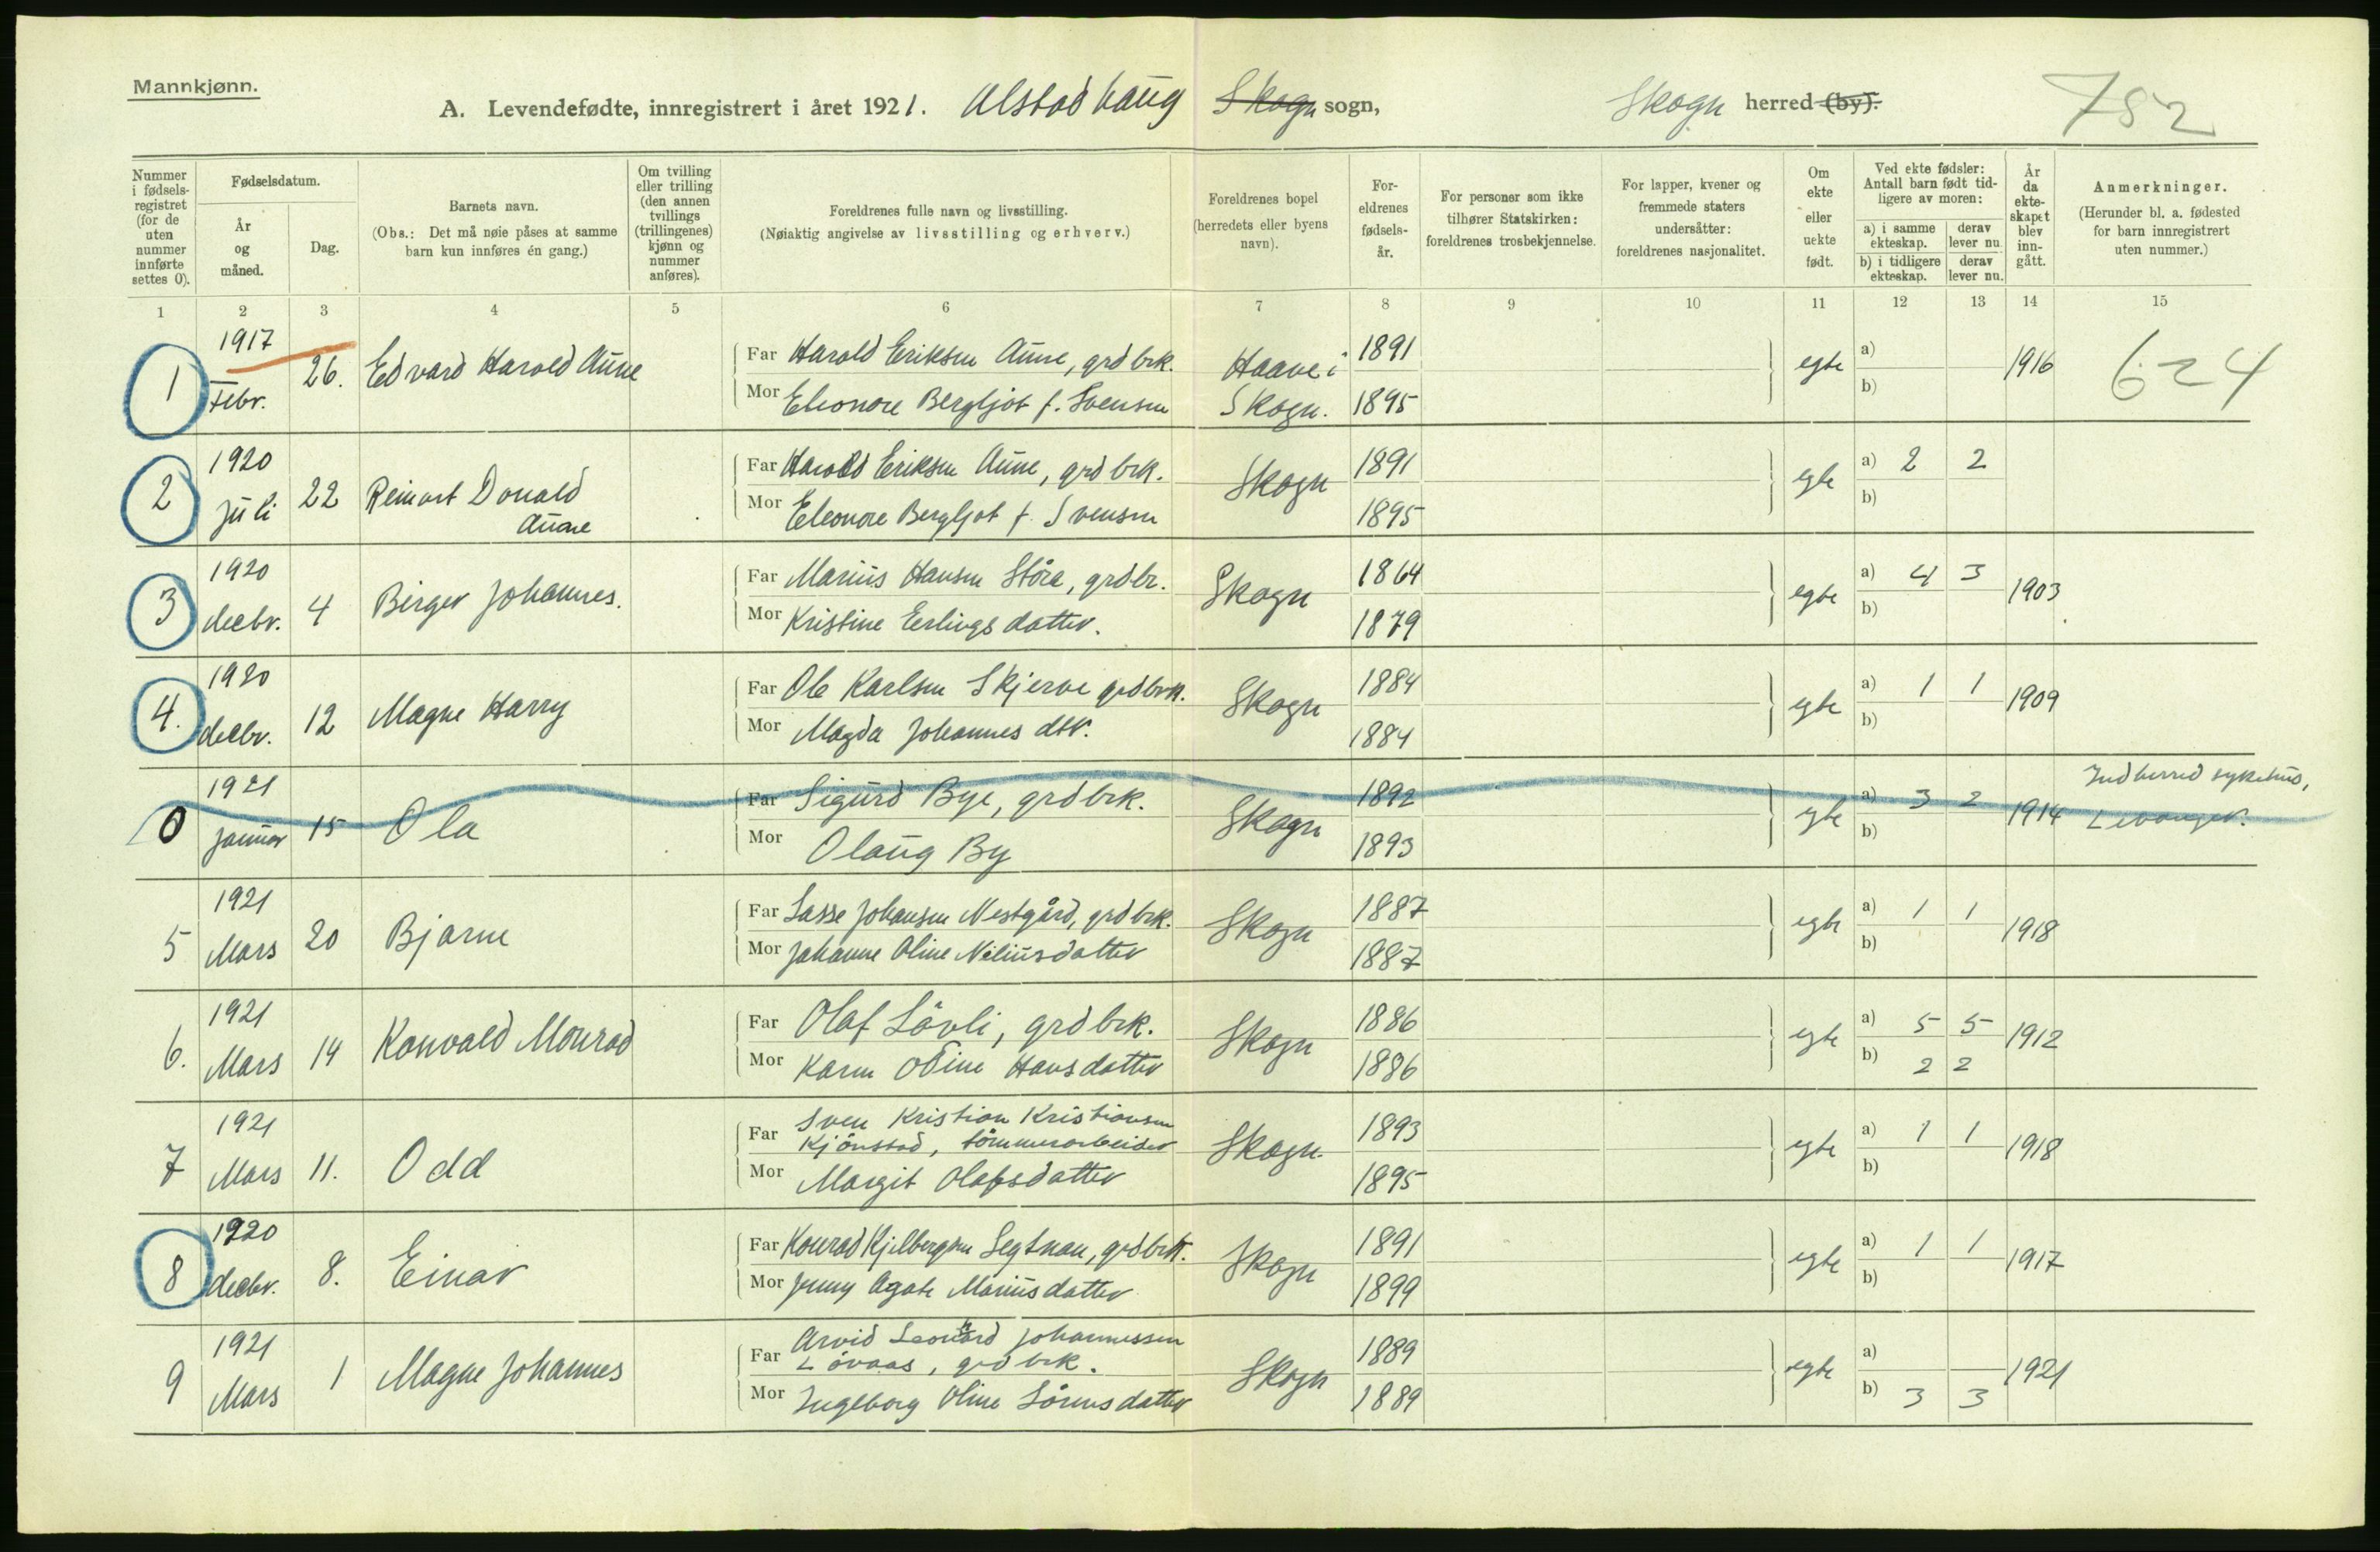 Mannkjønn.
A. Levendefødte, innregistrert i året 1921. Alstadhaug Skogn sogn, Skogn herred (by). 782
Nummer i fødselsregistret (for de uten nummer innførte settes 0).
Fødselsdatum.
År og måned.
Dag.
Barnets navn.
(Obs.: Det må nøie påses at samme barn kun innføres én gang.)
Om tvilling eller trilling (den annen tvillings (trillingenes) kjønn og nummer anføres).
Foreldrenes fulle navn og livsstilling.
(Nøiaktig angivelse av livsstilling og erhverv.)
Foreldrenes bopel (herredets eller byens navn).
Foreldrenes fødselsår.
For personer som ikke tilhører Statskirken: foreldrenes trosbekjennelse.
For lapper, kvener og fremmede staters undersåtter: foreldrenes nasjonalitet.
Om ekte eller uekte født.
Ved ekte fødsler: Antall barn født tidligere av moren:
a) i samme ekteskap. derav lever nu.
b) i tidligere ekteskap. derav lever nu.
År da ekteskapet blev inngått.
Anmerkninger.
(Herunder bl. a. fødested for barn innregistrert uten nummer.)
1 2 3 4 5 6 7 8 9 10 11 12 13 14 15
1 1917 Febr. 26. Edvard Harald Aune
Far Harald Eriksen Aune, grdbrk. Haave i 1891 egte a) 1916 624
Mor Eleonore Bergljot f. Svensen Skogn. 1895 b)
2 1920 Juli 22 Reinart Donald Aune
Far Harald Eriksen Aune, grdbrk. Skogn 1891 egte a) 2 2
Mor Eleonore Bergljot f. Svensen 1895 b)
3 1920 decbr. 4 Birger Johannes.
Far Marius Hansen Støre, grdbr. Skogn 1864 egte a) 4 3 1903
Mor Kristine Erlingsdatter. 1879 b)
4. 1920 decbr. 12 Magne Harry
Far Ole Karlsen Skjerve grdbrk. Skogn 1884 egte a) 1 1 1909
Mor Magda Johannes dtr. 1884 b)
0 1921 januar 15 Ola
Far Sigurd Bye, grdbrk. Skogn 1892 egte a) 3 2 1914 Indherred sykehus,
Mor Olaug By 1893 b) Levanger.
5 1921 Mars 20 Bjarne
Far Lasse Johansen Nestgård, grdbrk. Skogn 1887 egte a) 1 1 1918
Mor Johanne Oline Niliusdatter 1887 b)
6. 1921 Mars 14 Konvald Monrad
Far Olaf Løvli, grdbrk. Skogn 1886 egte a) 5 5 1912
Mor Karen Odine Hansdatter 1886 b) 2 2
7 1921 Mars 11. Odd
Far Sven Kristian Kristiansen
Kjønstad, tømmerarbeider Skogn 1893 egte a) 1 1 1918
Mor Margit Olafsdatter 1895 b)
8 1920 decbr. 8. Einar
Far Konrad Kjelbergsen Segtnan, grdbrk. Skogn 1891 egte a) 1 1 1917
Mor Jenny Agate Mariusdatter 1899 b)
9 1921 Mars 1 Magne Johannes
Far Arvid Leonard Johannessen
Løvaas, grdbrk. Skogn 1889 egte a) 1921
Mor Ingeborg Oline Sørensdatter 1889 b) 3 3